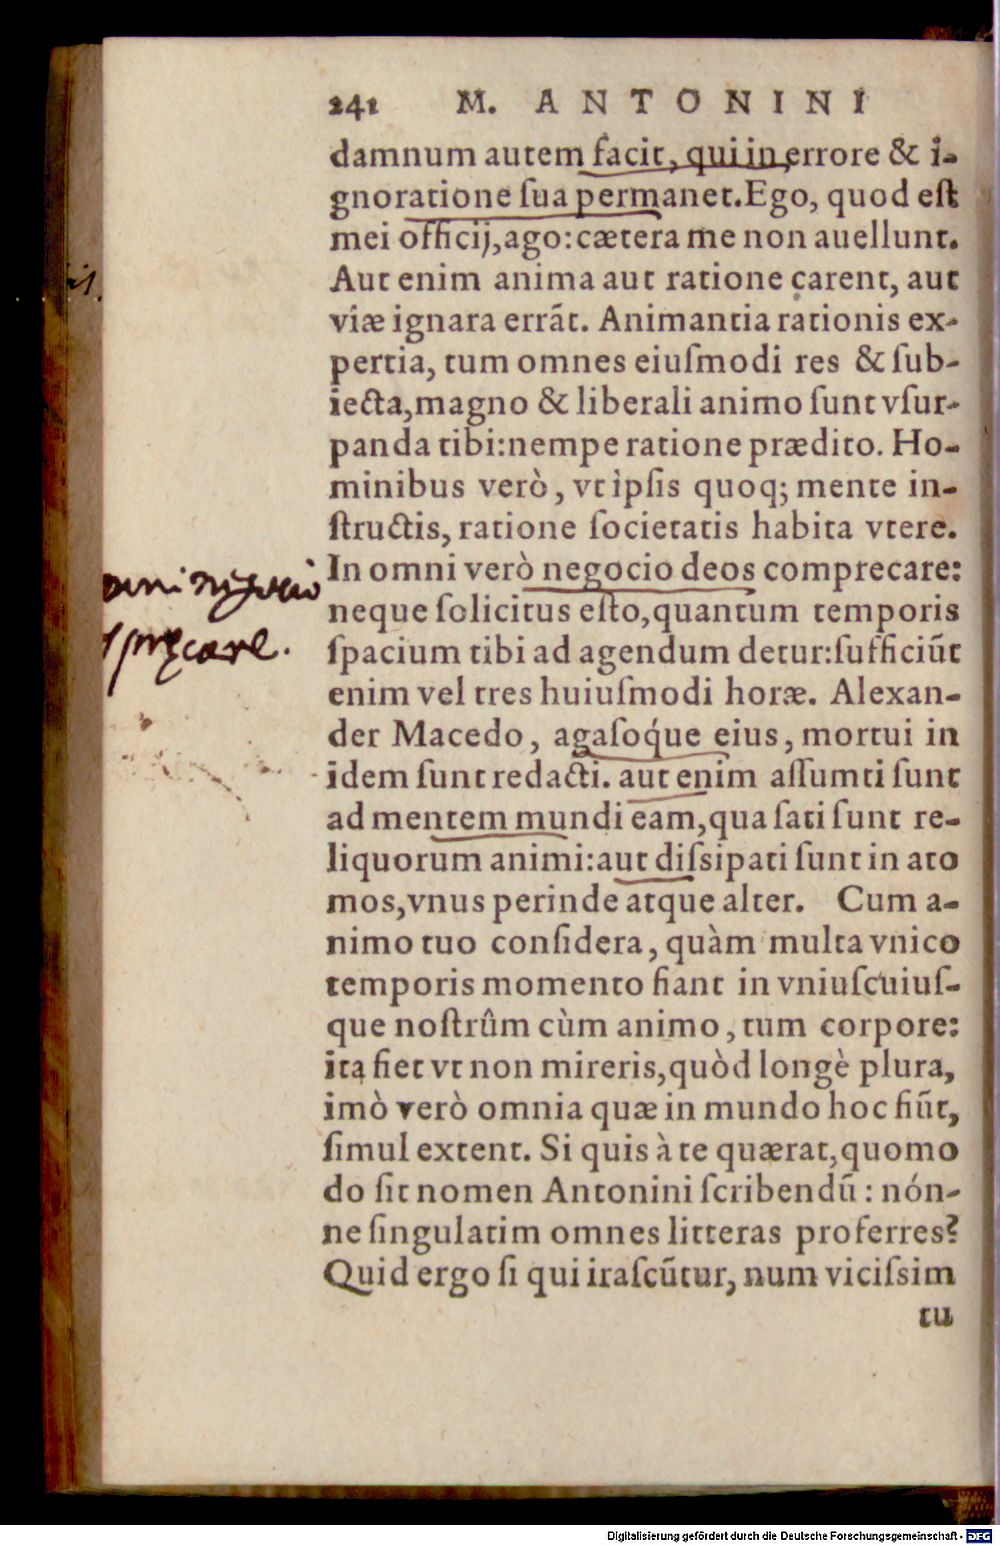 241 M. ANTONINI
damnum autem facit, qui in errore & i-
gnoratione ſua permanet. Ego, quod eſt
mei officij, ago: cætera me non auellunt.
Aut enim anima aut ratione carent, aut
viæ ignara errãt. Animantia rationis ex-
pertia, tum omnes eiuſmodi res & ſub-
iecta, magno & liberali animo ſunt vſur-
panda tibi: nempe ratione prædito. Ho-
minibus verò, vt ipſis quoq; mente in-
ſtructis, ratione ſocietatis habita vtere.
In omni verò negocio deos comprecare:
neque ſolicitus eſto, quantum temporis
ſpacium tibi ad agendum detur: ſufficiũt
enim vel tres huiuſmodi horæ. Alexan-
der Macedo, agaſoq́ue eius, mortui in
idem ſunt redacti. aut enim aſſumti ſunt
ad mentem mundi eam, qua ſati ſunt re-
liquorum animi: aut diſsipati ſunt in ato
mos, vnus perinde atque alter. Cum a-
nimo tuo conſidera, quàm multa vnico
temporis momento fiant in vniuſcuiuſ-
que noſtrûm cùm animo, tum corpore:
ita fiet vt non mireris, quòd longè plura,
imò verò omnia quæ in mundo hoc fiũt,
ſimul extent. Si quis à te quærat, quomo
do ſit nomen Antonini ſcribendũ: nón-
ne ſingulatim omnes litteras proferres?
Quid ergo ſi qui iraſcũtur, num viciſsim
tu
Digitalisierung gefördert durch die Deutsche Forschungsgemeinschaft - DFG